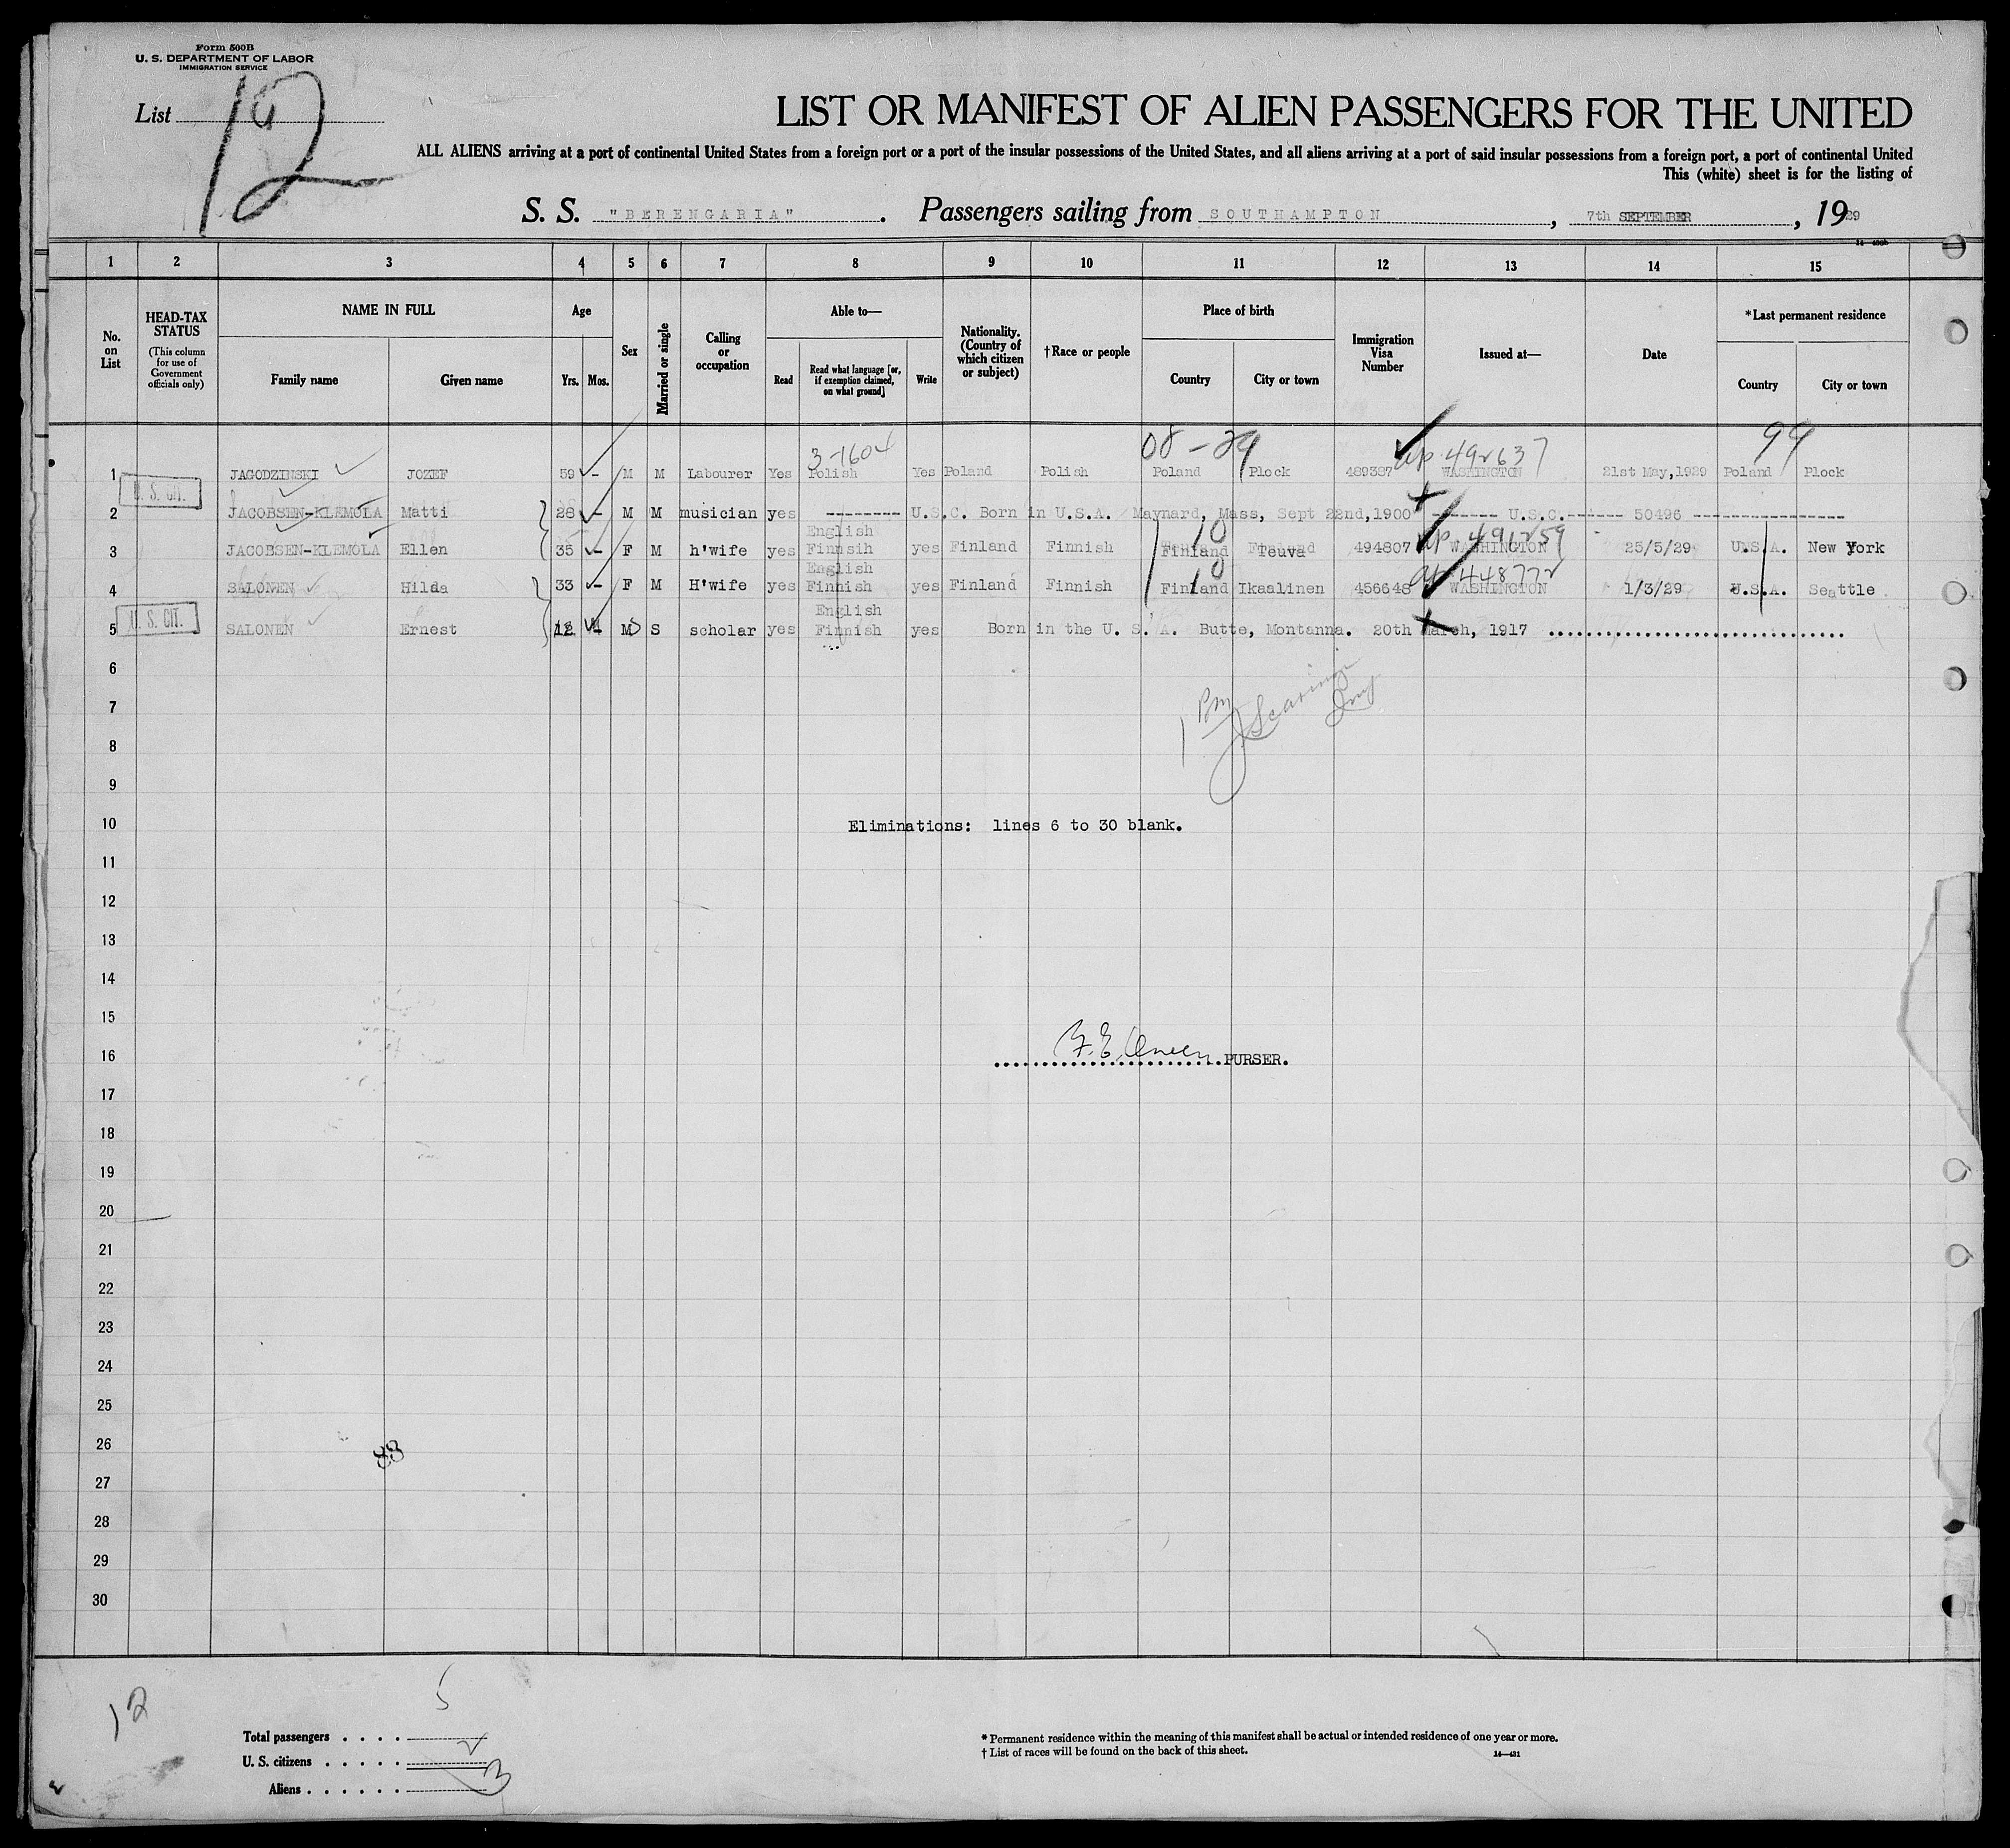 Form 500B
U. S. DEPARTMENT OF LABOR
IMMIGRATION SERVICE
List 12
LIST OR MANIFEST OF ALIEN PASSENGERS FOR THE UNITED
ALL ALIENS arriving at a port of continental United States from a foreign port or a port of the insular possessions of the United States, and all aliens arriving at a port of said insular possessions from a foreign port, a port of continental United
This (white) sheet is for the listing of
S. S. "BERENGARIA". Passengers sailing from SOUTHAMPTON, 7th SEPTEMBER, 1929
1 2 3 4 5 6 7 8 9 10 11 12 13 14 15
No. on List
HEAD-TAX STATUS
(This column for use of Government officials only)
NAME IN FULL
Family name Given name
Age
Yrs. Mos.
Sex
Married or single
Calling or occupation
Able to—
Read
Read what language [or, if exemption claimed, on what ground]
Write
Nationality. (Country of which citizen or subject)
†Race or people
Place of birth
Country City or town
Immigration Visa Number
Issued at—
Date
*Last permanent residence
Country City or town
3-1604 08-29 492637 99
1 JAGODZINSKI JOZEF 59 - M M Labourer Yes Polish Yes Poland Polish Poland Plock 489387 WASHINGTON 21st May,1929 Poland Plock
U. S. CIT.
2 JACOBSEN-KLEMOLA Matti 28 - M M musician yes -------- U.S.C. Born in U.S.A. Maynard, Mass, Sept 22nd,1900 ------- U.S.C.------ 50496 ----------------
English 10 491259
3 JACOBSEN-KLEMOLA Ellen 35 - F M h'wife yes Finnsih yes Finland Finnish Finland Teuva 494807 WASHINGTON 25/5/29 U.S.A. New York
English 10 448772
4 SALONEN Hilda 33 - F M H'wife yes Finnish yes Finland Finnish Finland Ikaalinen 456648 WASHINGTON 1/3/29 U.S.A. Seattle
U. S. CIT. English
5 SALONEN Ernest 12 - M S scholar yes Finnish yes Born in the U. S. A. Butte, Montanna. 20th March, 1917 ................................
6
7
8
9
10 Eliminations: lines 6 to 30 blank.
11
12
13
14
15
16 PURSER.
17
18
19
20
21
22
23
24
25
26
88
27
28
29
30
12
5
Total passengers . . . .
U. S. citizens . . . . . 2
Aliens . . . . . . 3
* Permanent residence within the meaning of this manifest shall be actual or intended residence of one year or more.
† List of races will be found on the back of this sheet.
14—431